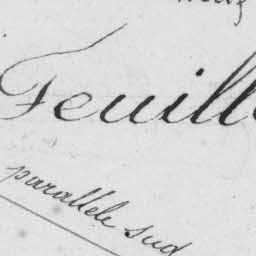 Feuill
parallèle sud